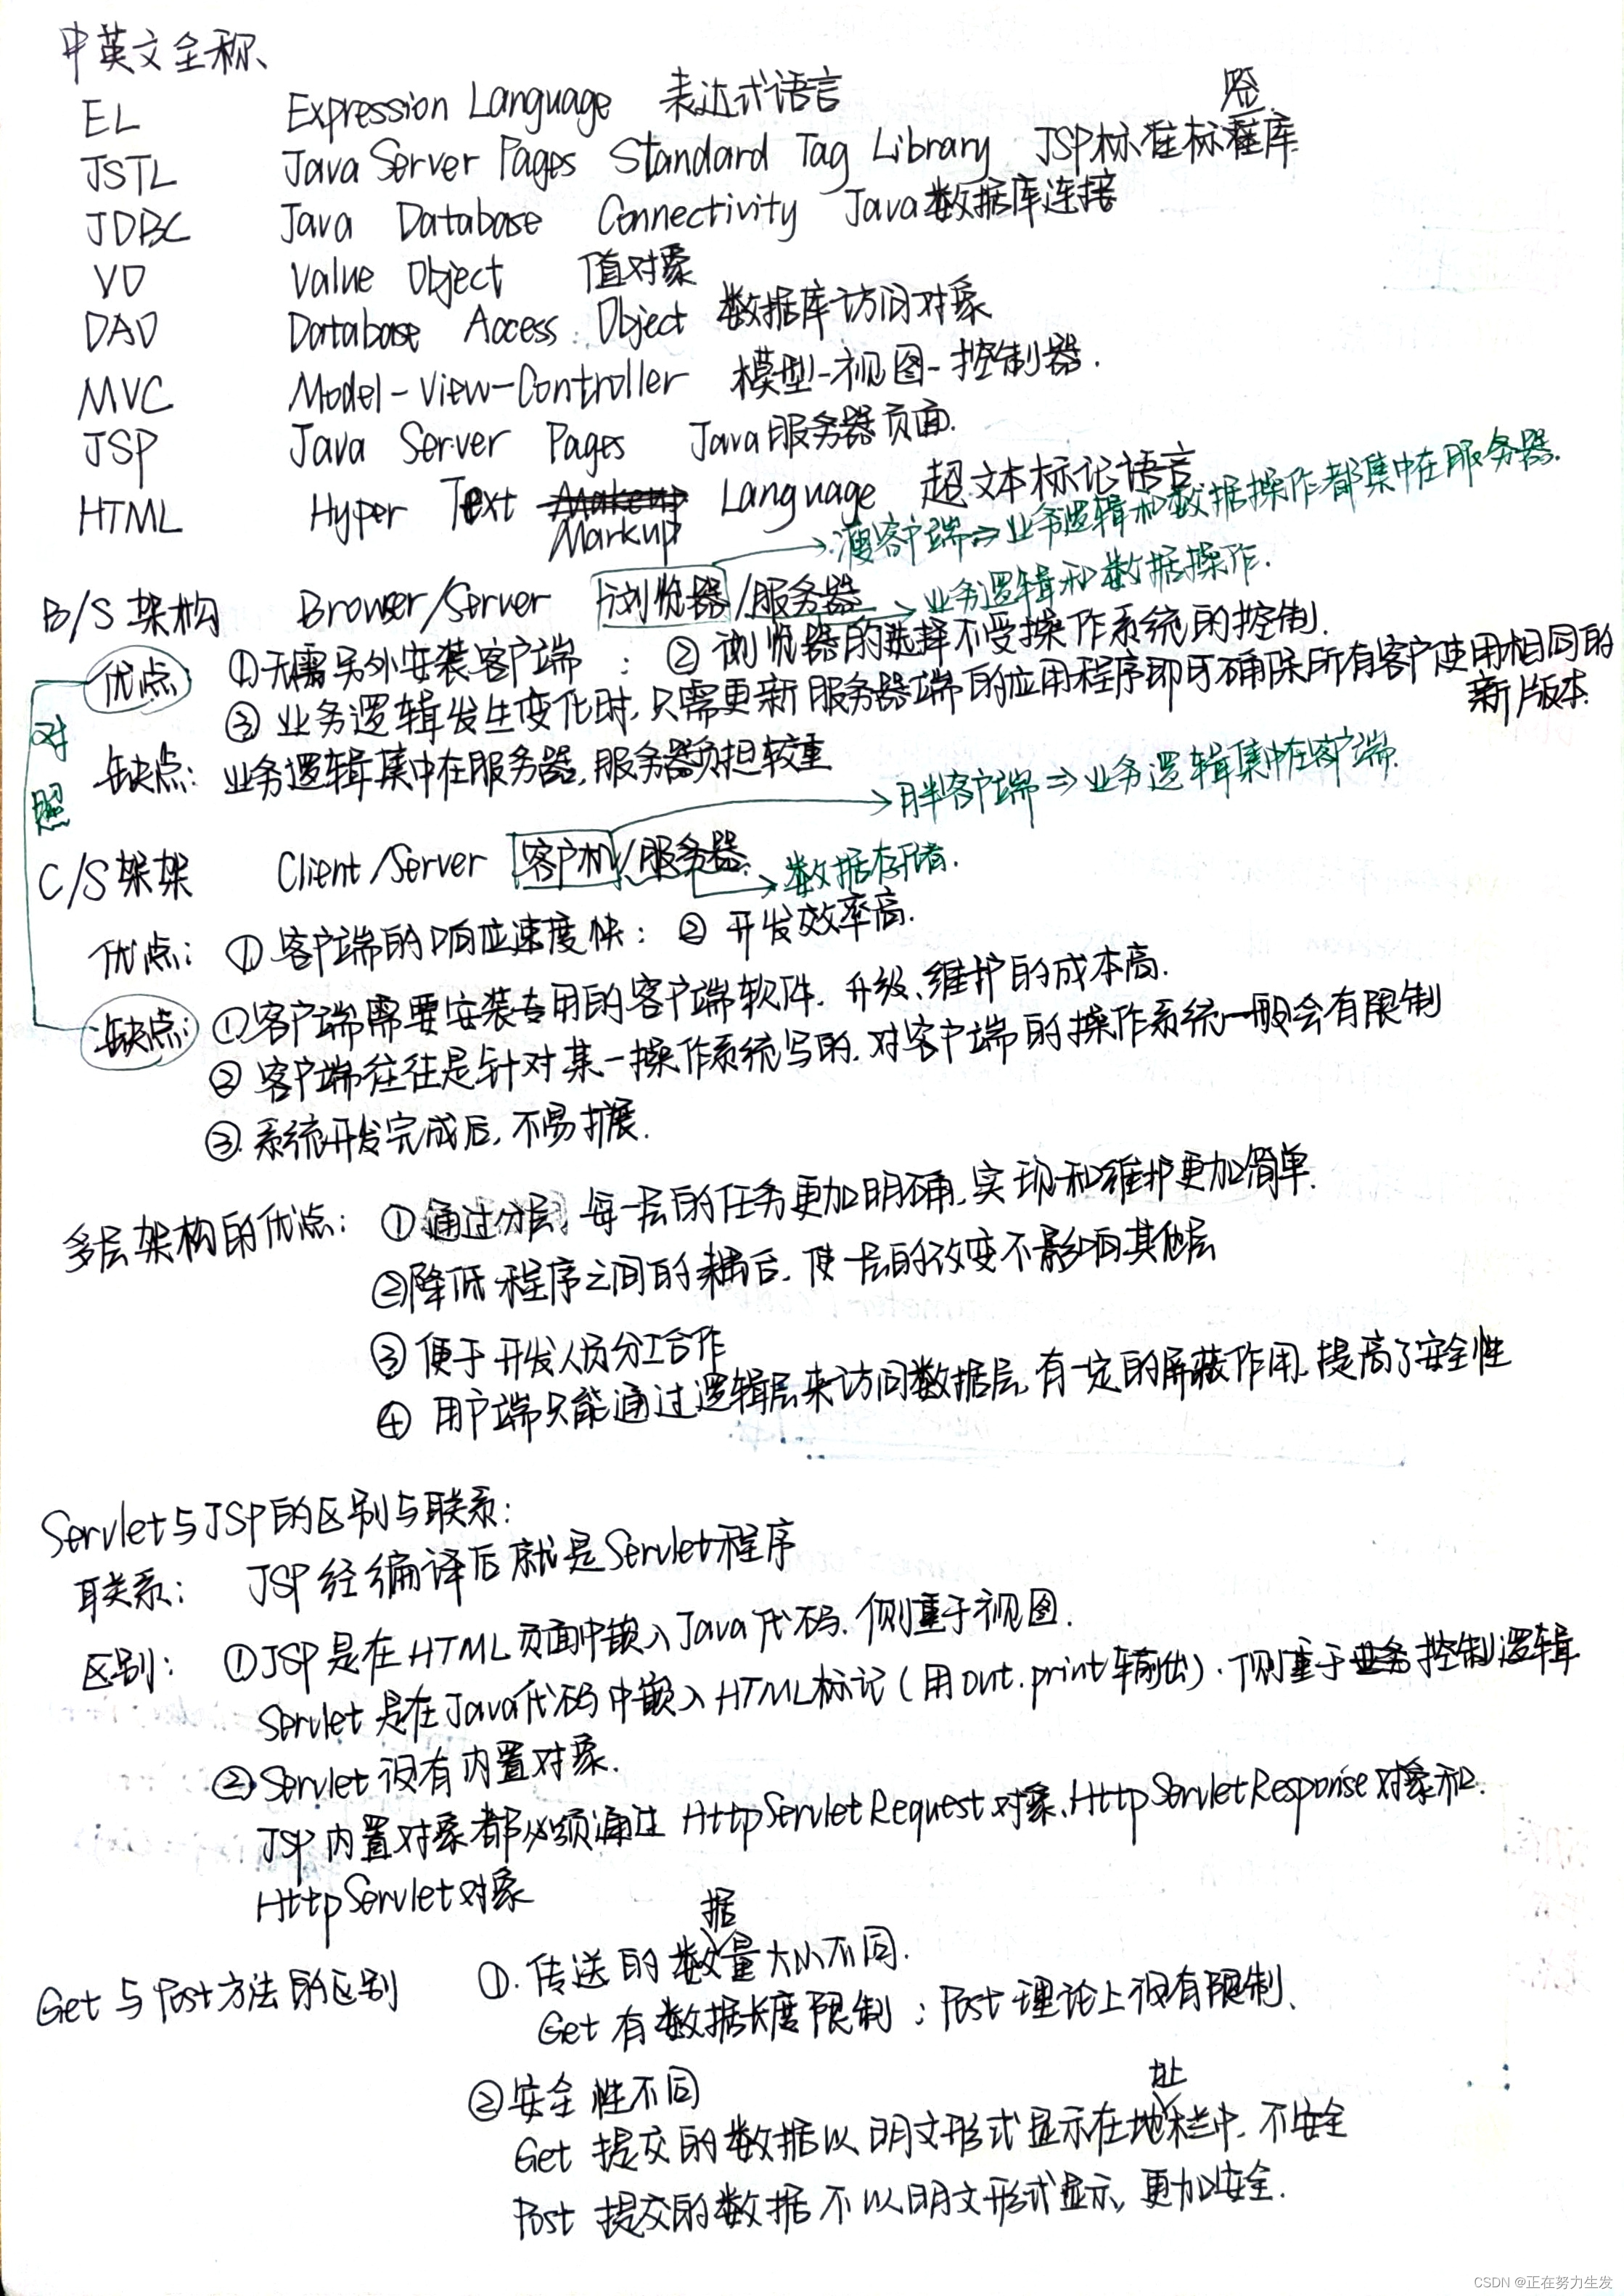 中英文全称、
EL Expression Language 表达式语言
JSTL Java Server Pages Standard Tag Library JSP标准标签库
JDBC Java Database Connectivity Java数据库连接
VO Value Object 值对象
DAO Database Access Object 数据库访问对象
MVC Model-View-Controller 模型-视图-控制器.
JSP Java Server Pages Java服务器页面.
HTML Hyper Text Markup Language 超文本标记语言
瘦客户端⇒业务逻辑和数据操作都集中在服务器.
B/S架构 Browser/Server 浏览器/服务器
业务逻辑和数据操作.
优点: ①无需另外安装客户端; ②浏览器的选择不受操作系统的控制.
③业务逻辑发生变化时,只需更新服务器端的应用程序即可确保所有客户使用相同的
新版本.
对照
缺点: 业务逻辑集中在服务器,服务器负担较重
胖客户端⇒业务逻辑集中在客户端.
C/S架架 Client/Server 客户机/服务器.
数据存储者.
优点: ①客户端的响应速度快; ②开发效率高.
缺点: ①客户端需要安装专用的客户端软件.升级、维护的成本高.
②客户端往往是针对某一操作系统写的.对客户端的操作系统一般会有限制
③系统开发完成后,不易扩展.
多层架构的优点: ①通过分层,每一层的任务更加明确,实现和维护更加简单.
②降低程序之间的耦合,使一层的改变不影响其他层
③便于开发人员分工合作
④用户端只能通过逻辑层来访问数据层,有一定的屏蔽作用,提高了安全性
Servlet与JSP的区别与联系:
联系: JSP经编译后就是Servlet程序
区别: ①JSP是在HTML页面中嵌入Java代码.侧重于视图.
Servlet是在Java代码中嵌入HTML标记(用out.print输出).侧重于控制逻辑
②Servlet没有内置对象.
JSP内置对象都必须通过HttpServletRequest对象、HttpServletResponse对象和
HttpServlet对象
Get与Post方法的区别 ①.传送的数据量大小不同.
Get有数据长度限制;Post理论上没有限制、
②安全性不同
Get提交的数据以明文形式显示在地址栏中.不安全
Post提交的数据不以明文形式显示,更加安全.
CSDN @正在努力生发